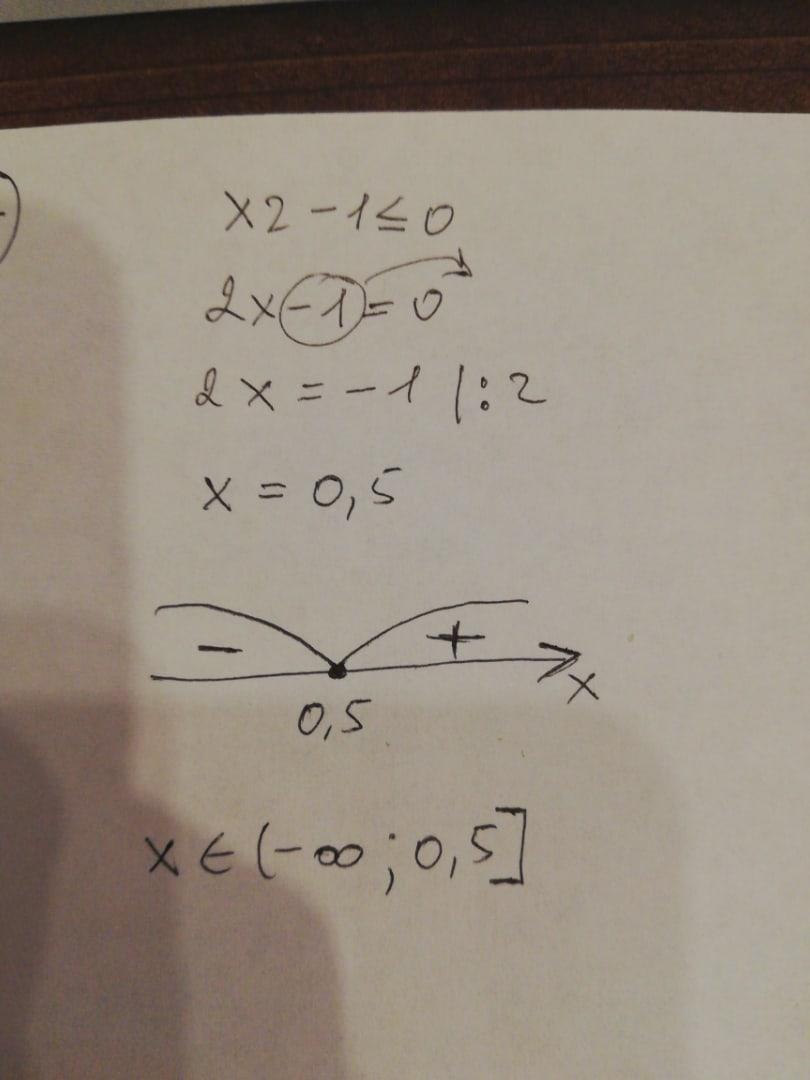 x2 - 1 ≤ 0
2x - 1 = 0
2x = -1 |:2
x = 0,5
- +
x
0,5
x ∈ (-∞; 0,5]